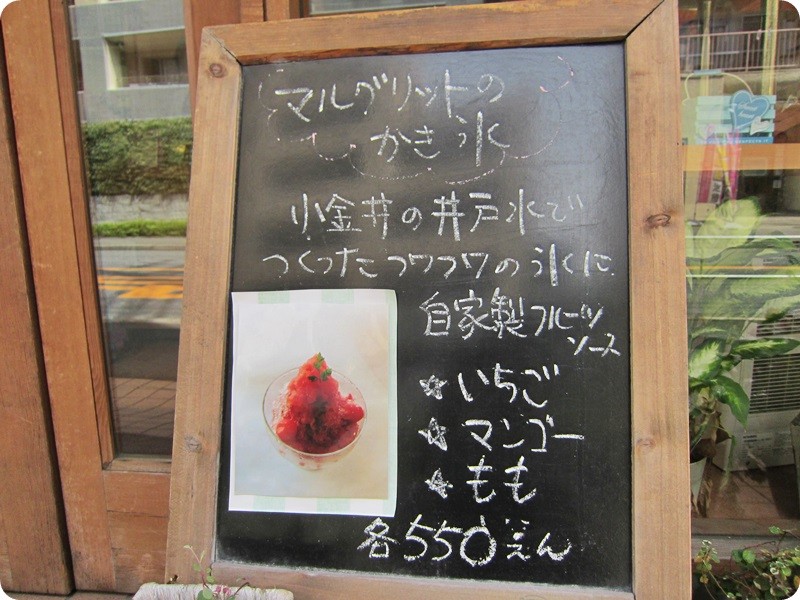 マルグリットの
かき氷
小金井の井戸水で
つくったフワフワの氷に
自家製フルーツ
ソース
☆いちご
☆マンゴー
☆もも
各550えん